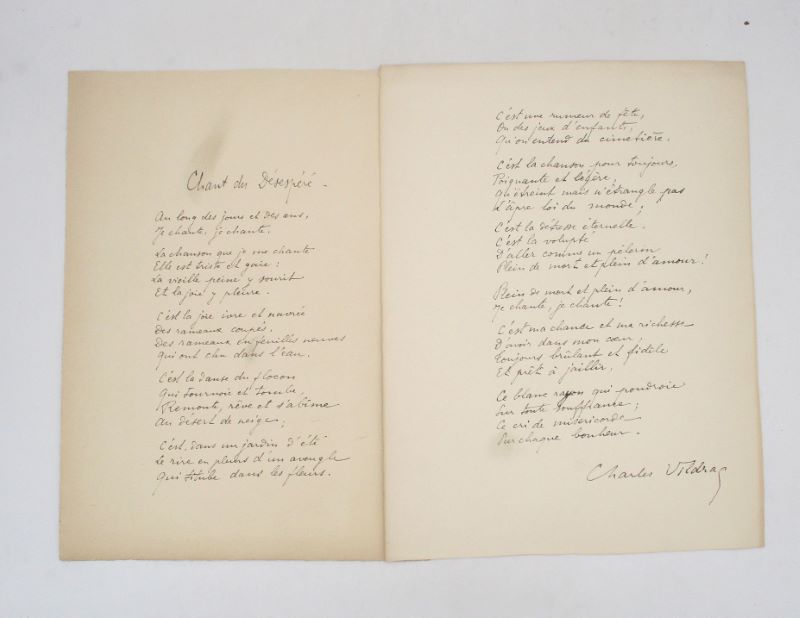 Chant du Désespéré –
Au long des jours et des ans,
Je chante, je chante.
La chanson que je me chante
Elle est triste et gaie :
La vieille peine y sourit
Et la joie y pleure.
C'est la joie ivre et navrée
Des rameaux coupés,
Des rameaux en feuilles neuves
Qui ont chu dans l'eau.
C'est la danse du flocon
Qui tournoie et tombe,
Remonte, rêve et s'abîme
Au désert de neige ;
C'est, dans un jardin d'été
Le rire en pleurs d'un aveugle
Qui titube dans les fleurs.
C'est une rumeur de fête,
Ou des jeux d'enfants,
Qu'on entend du cimetière.
C'est la chanson pour toujours,
Poignante et légère,
Qu'étreint mais n'étrangle pas
L'âpre loi du monde ;
C'est la détresse éternelle.
C'est la volupté
D'aller comme un pèlerin
Plein de mort et plein d'amour !
Plein de mort et plein d'amour,
Je chante, je chante !
C'est ma chance et ma richesse
D'avoir dans mon cœur,
Toujours brûlant et fidèle
Et prêt à jaillir,
Ce blanc rayon qui poudroie
Sur toute souffrance ;
Ce cri de miséricorde
Sur chaque bonheur.
Charles Vildrac